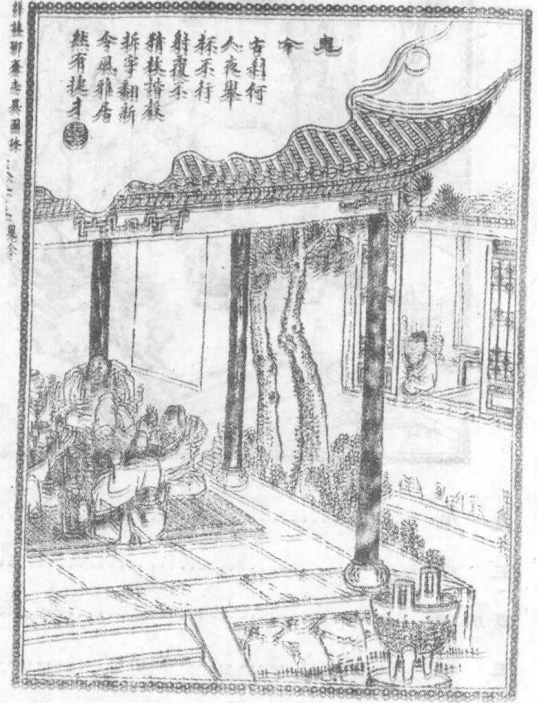 鬼令
古刹何
人夜舉
杯不行
射覆不
猜枚諧聲
拆字翻新
令風雅居
然有捷才
詳註聊齋志異圖詠
鬼令